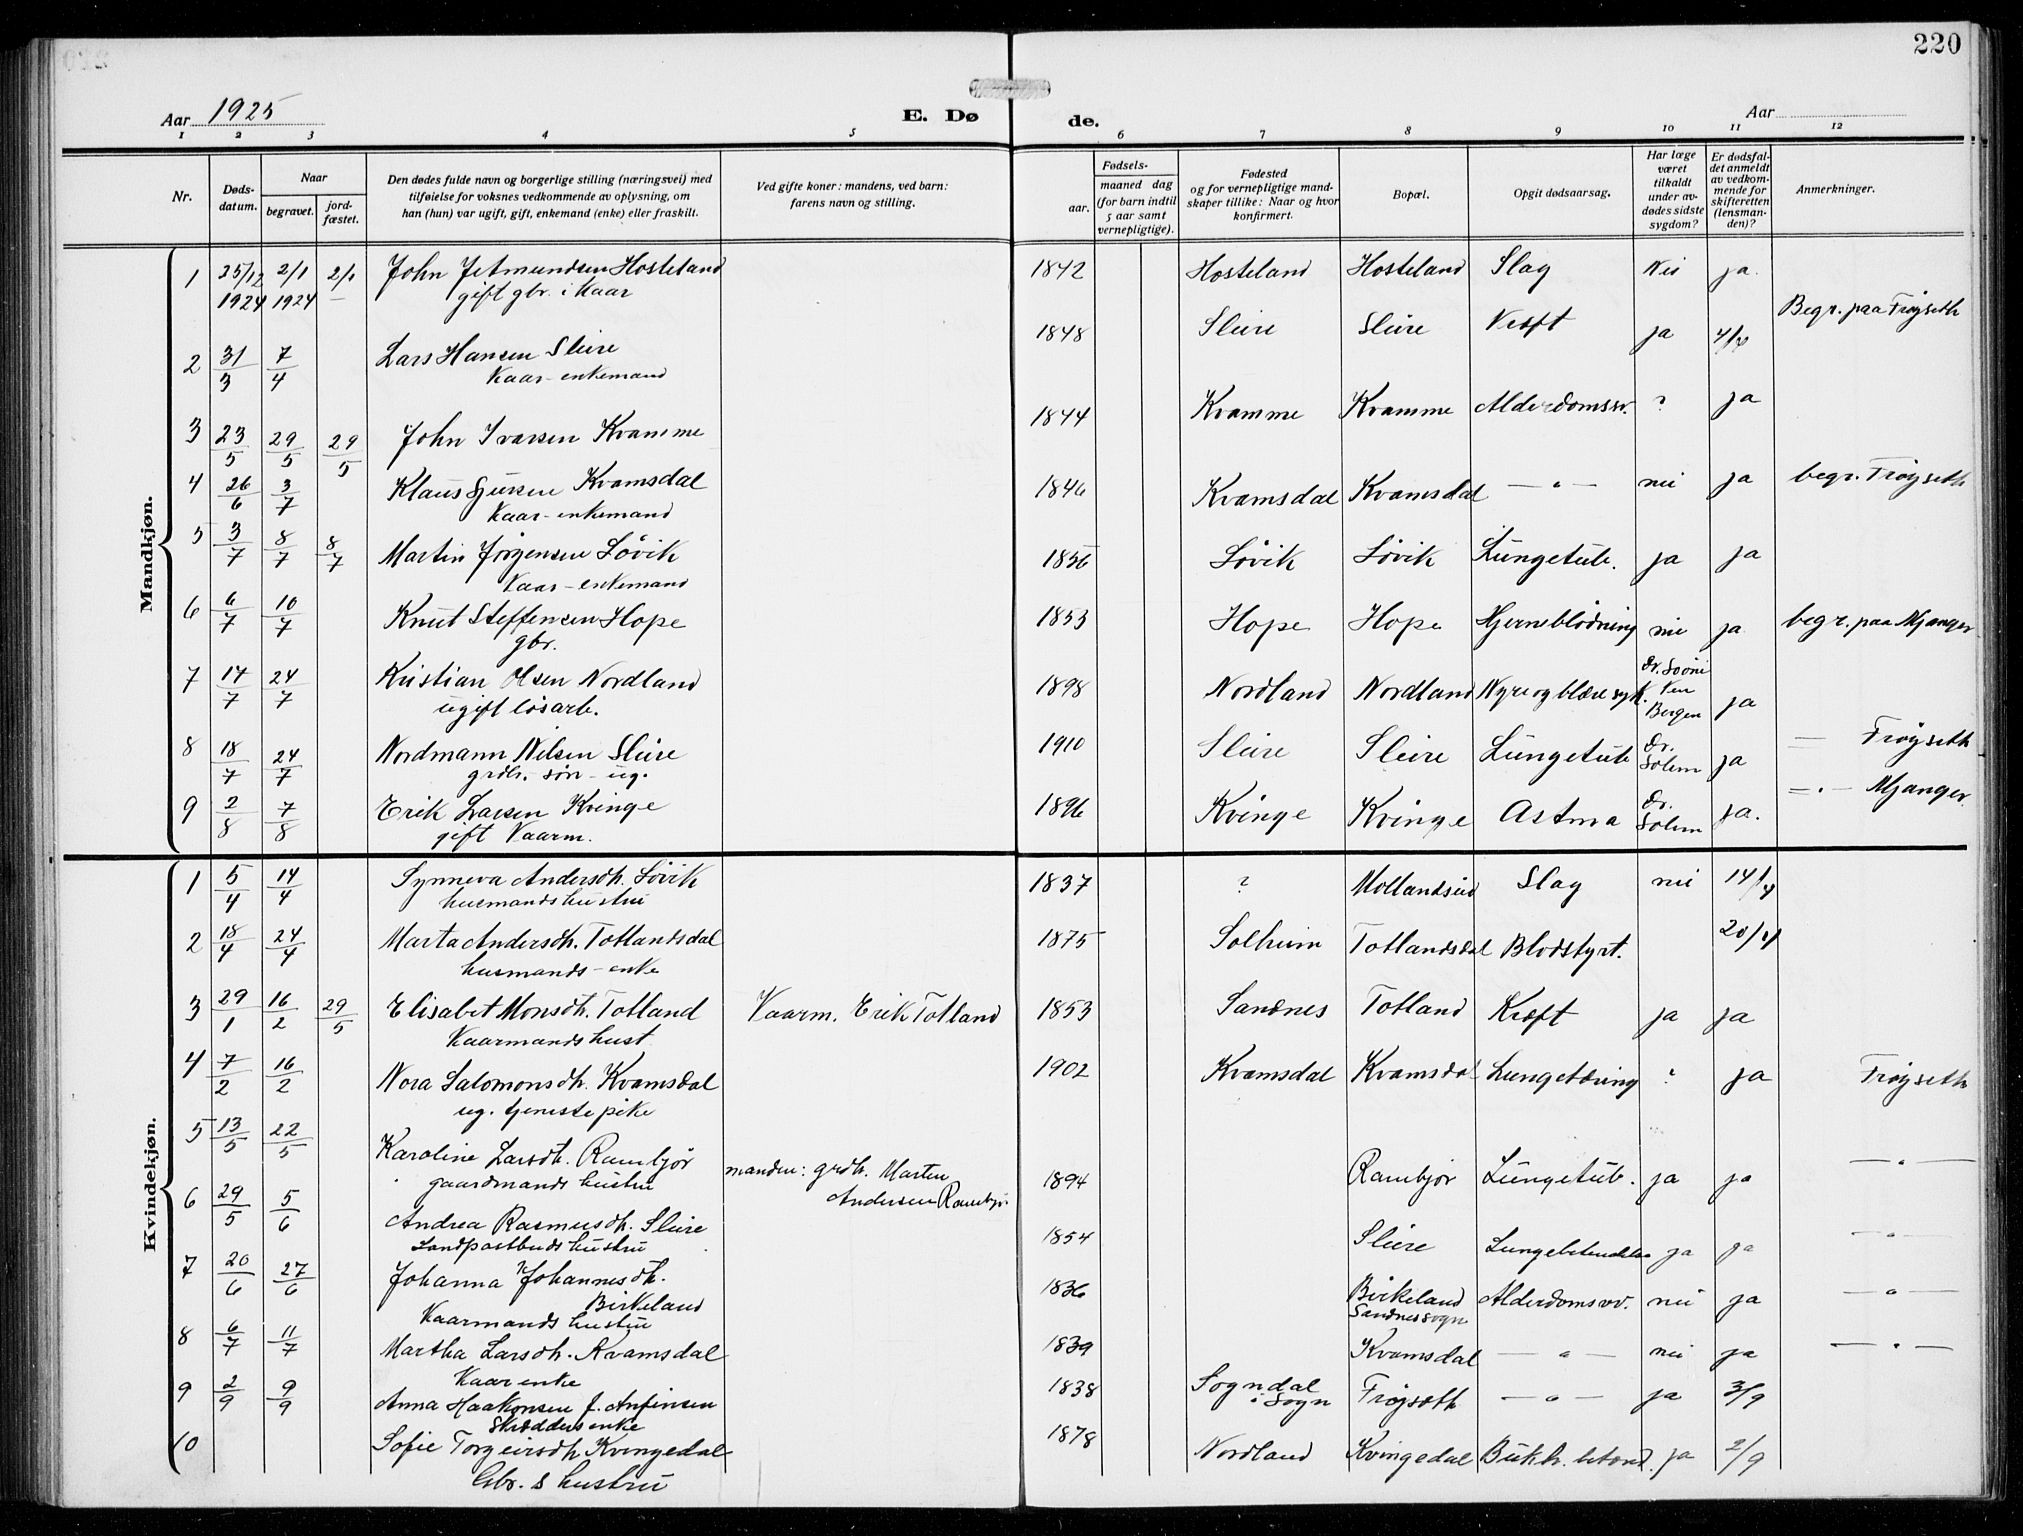 220
Aar 1925
E. Dø
de.
Aar
1 2 3 4 5 6 7 8 9 10 11 12
Nr.
Døds-
datum.
Naar
begravet.
jord-
fæstet.
Den dødes fulde navn og borgerlige stilling (næringsvei) med
tilføielse for voksnes vedkommende av oplysning, om
han (hun) var ugift, gift, enkemand (enke) eller fraskilt.
Ved gifte koner: mandens, ved barn:
farens navn og stilling.
Fødsels-
aar.
maaned dag
(for barn indtil
5 aar samt
vernepligtige).
Fødested
og for vernepligtige mand-
skaper tillike: Naar og hvor
konfirmert.
Bopæl.
Opgit dødsaarsag.
Har læge
været
tilkaldt
under av-
dødes sidste
sygdom?
Er dødsfal-
det anmeldt
av vedkom-
mende for
skifteretten
(lensman-
den)?
Anmerkninger.
Mandkjøn.
1 25/12 2/1 2/1 John Hosteland 1842 Hosteland Hosteland Slag Nei ja.
1924 1924 — gift gbr. i Kaar
Begr. paa Frøyseth
2 31/3 7/4 Lars Hansen Sleire 1848 Sleire Sleire ja
Kaar-enkemand
3 23/5 29/5 29/5 John Ivarsen Kvamme 1844 Kvamme Kvamme Alderdomssv. ? ja
4 26/6 3/7 Klaus Kvamsdal 1846 Kvamsdal Kvamsdal — " — nei ja begr. Frøyseth
Kaar-enkemand
5 3/7 8/7 8/7 Martin Jørgensen Søvik 1856 Søvik Søvik Lungetub. ja ja
Kaar-enkemand
6 6/7 10/7 Knut Steffensen Hope 1853 Hope Hope Hjerneblødning nei ja begr. paa Mjanger
gbr.
7 17/7 24/7 Kristian Olsen Nordland 1898 Nordland Nordland Nyre og blære syk. Dr. Bergen ja
ugift løsarb.
8 18/7 24/7 Nordmann Nilsen Sleire 1910 Sleire Sleire Lungetub Dr. Solem ja — Frøyseth
grdbr. søn - ug.
9 2/8 7/8 Erik Larsen Kvinge 1896 Kvinge Kvinge Astma Dr. Solem ja. — " — Mjanger.
gift Kaarm.
Kvindekjøn.
1 5/4 14/4 Synneva Andersdh. Søvik 1837 ? Slag nei 14/4
husmandshustru
2 18/4 24/4 Marta Andersdh. Totlandsdal 1875 Solheim Totlandsdal Blodstyrt. 20/4
husmands-enke
3 29/1 16/2 29/5 Elisabet Monsdh. Totland Kaarm. Erik Totland 1853 Sandnes Totland Kræft ja ja
Kaarmandshust
4 7/2 16/2 Nora Salomonsdh. Kvamsdal 1902 Kvamsdal Kvamsdal Lungetæring ? ja Frøyseth
ug. tjenestepike
5 13/5 22/5 Karoline Larsdh. Rambjør manden: grdbr. Marten 1894 Rambjør Lungetub. ja ja — " —
gaardmandshustru Andersen Rambjør
6 29/5 5/6 Andrea Rasmusdh. Sleire 1854 Sleire Lungebetændelse ja ja — " —
Landpostbuds hustru
7 20/6 27/6 Johanna Johannesdh. 1836 Birkeland Alderdomssv. nei ja — " —
Birkeland Sandnessogn
Kaarmands hustru
8 6/7 11/7 Martha Larsdh. Kvamsdal 1839 Kvamsdal — " — nei ja — " —
Kaarenke
9 2/9 9/9 Anna Haakonsen f. Anfinsen 1838 Sogndal i Sogn Frøyseth — " — ja 3/9
Skrædders enke
10 Sofie Torgeirsdh Kvingedal 1878 Nordland Kvingedal Bukh. betænd. ja 2/9
Gbr.s hustru